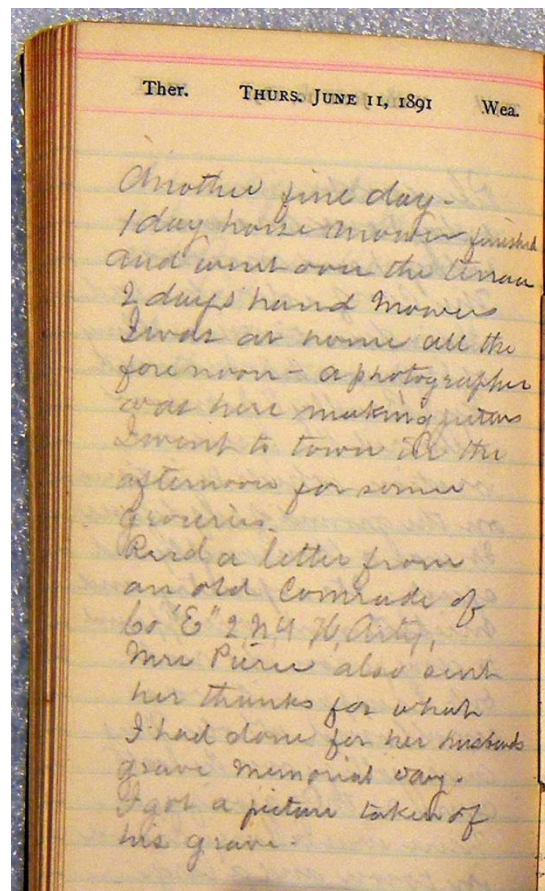 Ther. THURS. JUNE 11, 1891 Wea.
Another fine day.
1 day horse mower finished
and went over the terrace
2 days hand mowers
I was at home all the
forenoon - a photographer
was here making picturs
I went to town in the
afternoon for some
groceries.
Recd a letter from
an old Comrade of
Co "E" 2 N.Y. H. Arty,
Mrs Pierce also sent
her thanks for what
I had done for her husbands
grave Memorial Day.
I got a picture taken of
his grave.